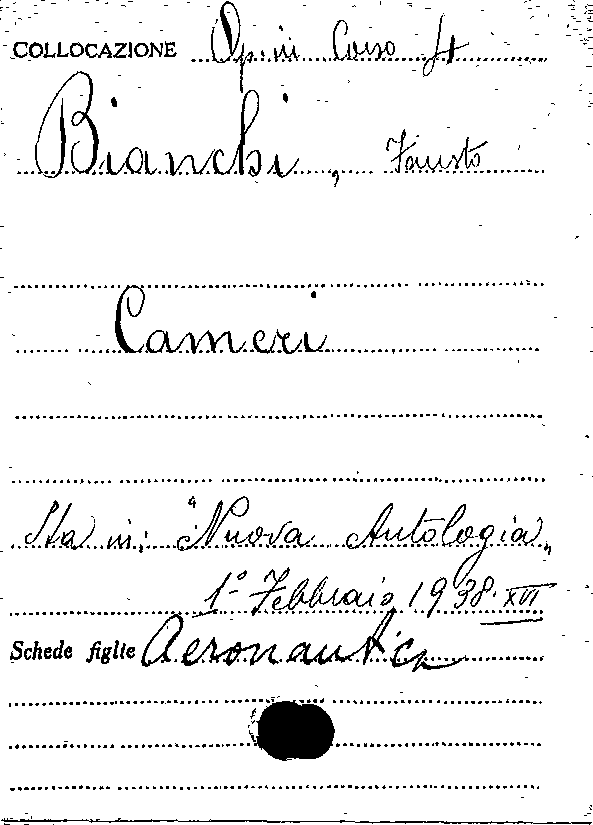 COLLOCAZIONE Corso
Bianchi, Fausto
Cameri
Sta in: "Nuova Antologia„
1° Febbraio 1938. XVI
Schede figlie Aeronautica